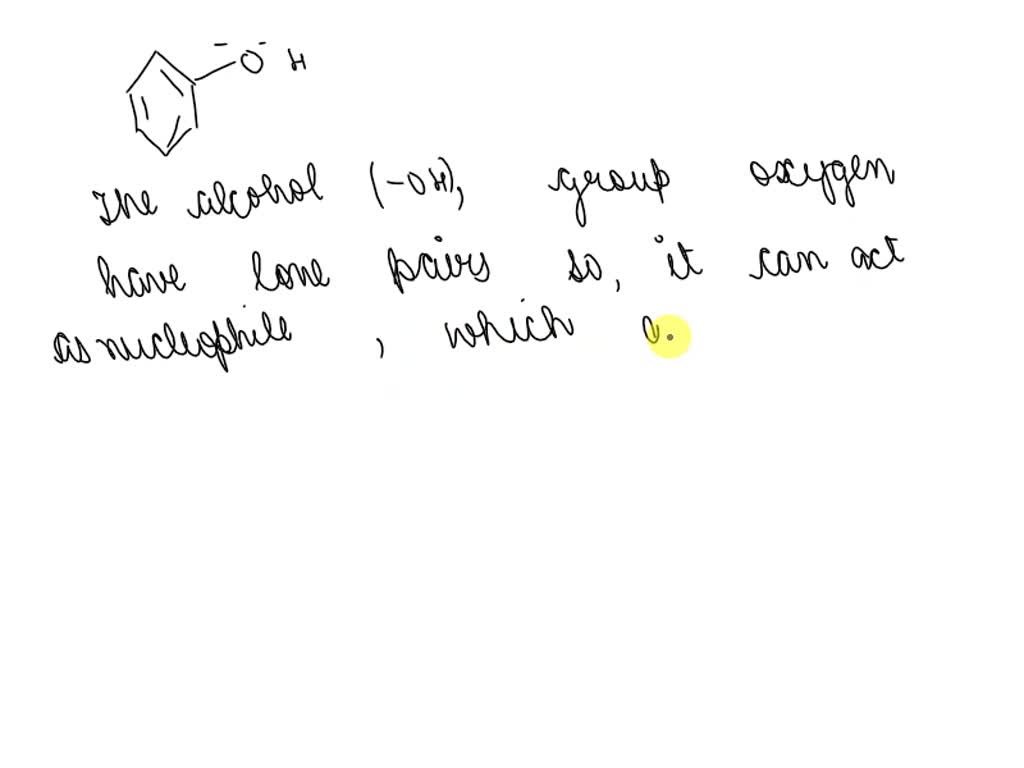 O H
The alcohol (-OH), group oxygen
have lone pairs so, it can act
as nucleophile, which